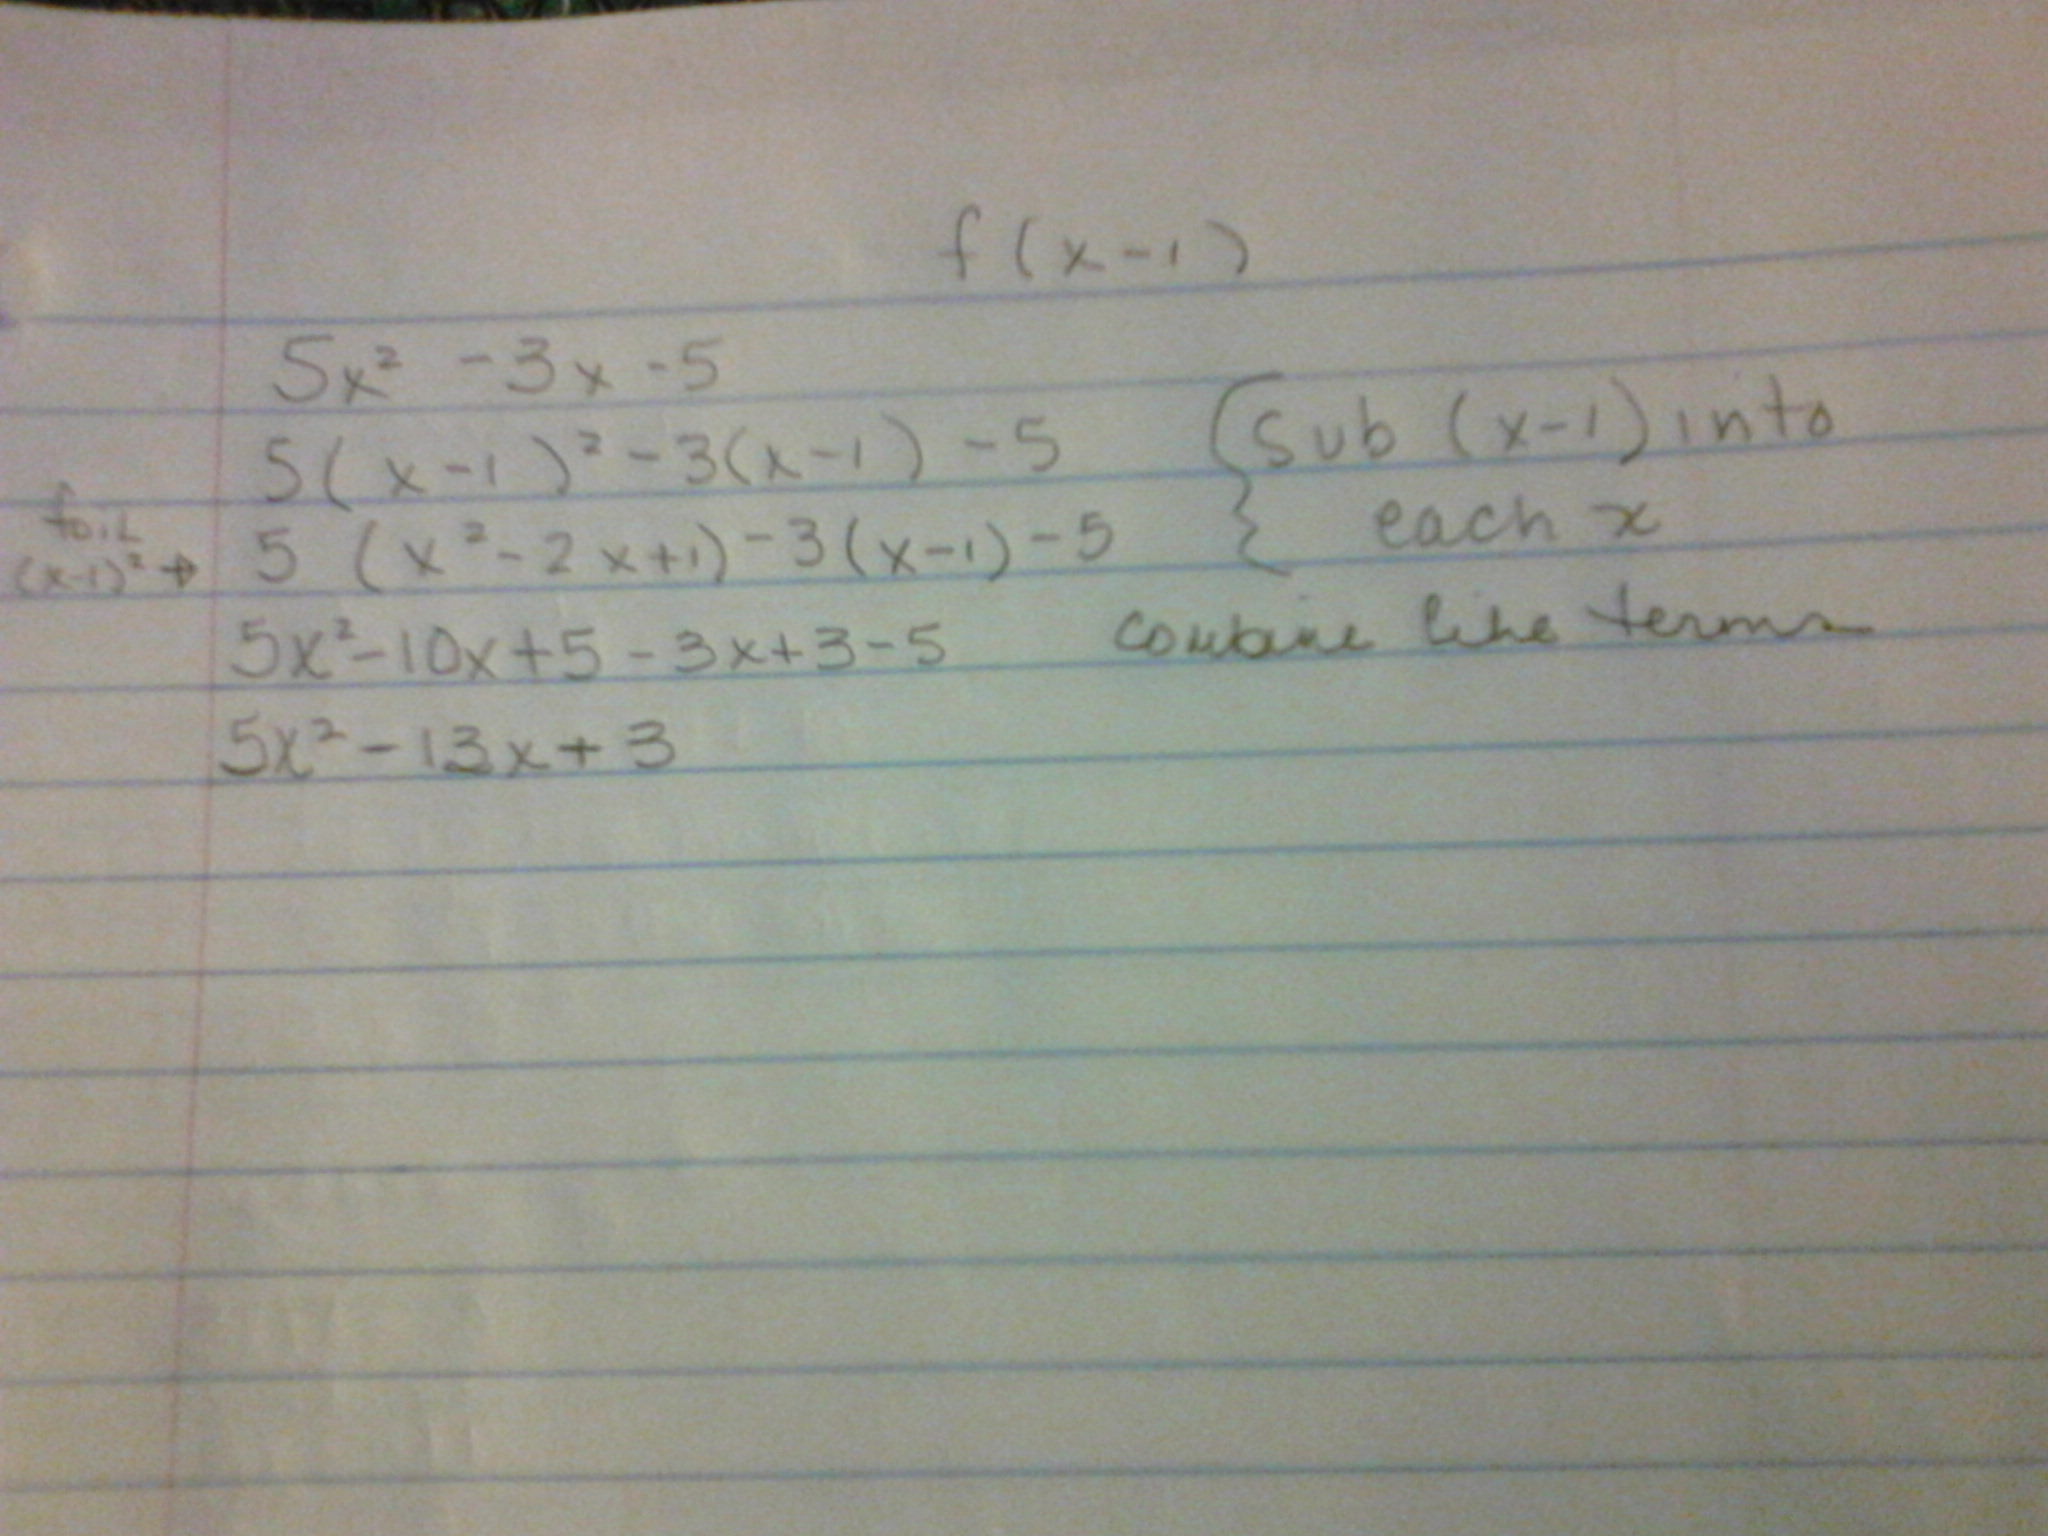 f(x-1)
5x² -3x -5
5(x-1)² -3(x-1) -5 {Sub (x-1) into
each x
foil
(x-1)² → 5 (x²-2x+1) -3(x-1) -5
5x²-10x+5 -3x+3-5 combine like terms
5x² -13x+3